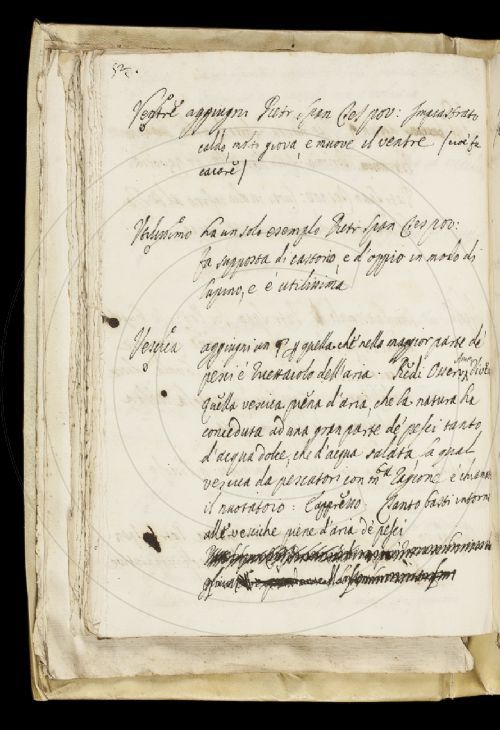 52.
Ventre aggiugni Pietr Span Cresp ov: Impiastrato
caldo molto giova e muove il ventre (cioè fa
cacare)
Utilissimo ha un solo esempio Pietr Span Cresp ov:
fa supposta di castorio, e d'oppio in modo di
lupino, e è utilissima
Vescica aggiugni un § quella, che nella maggior parte de
pesci è ricettacolo dell'aria Redi
Quella vescica piena d'aria, che la natura ha
conceduta ad una gran parte de' pesci tanto
d'acqua dolce, che d'acqua salata la qual
vescica da pescatori con m.ta ragione è chiamata
il nuotatoio: E appresso: Tanto basti intorno
alle vesciche piene d'aria de pesci